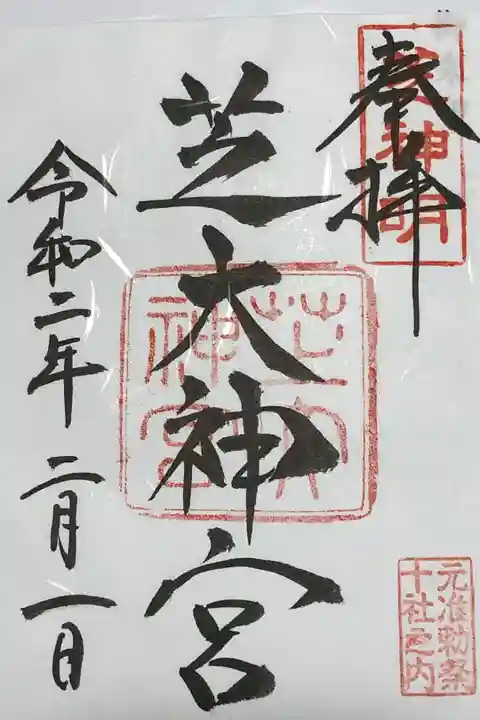 奉拝
芝神明
芝大神宮
芝大
神宮
元准勅祭
十社之内
令和二年 二月一日